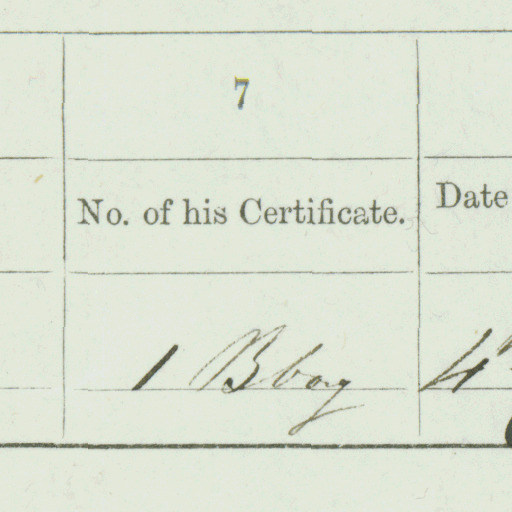 7
No. of his Certificate.
Date
1 Bbay
4